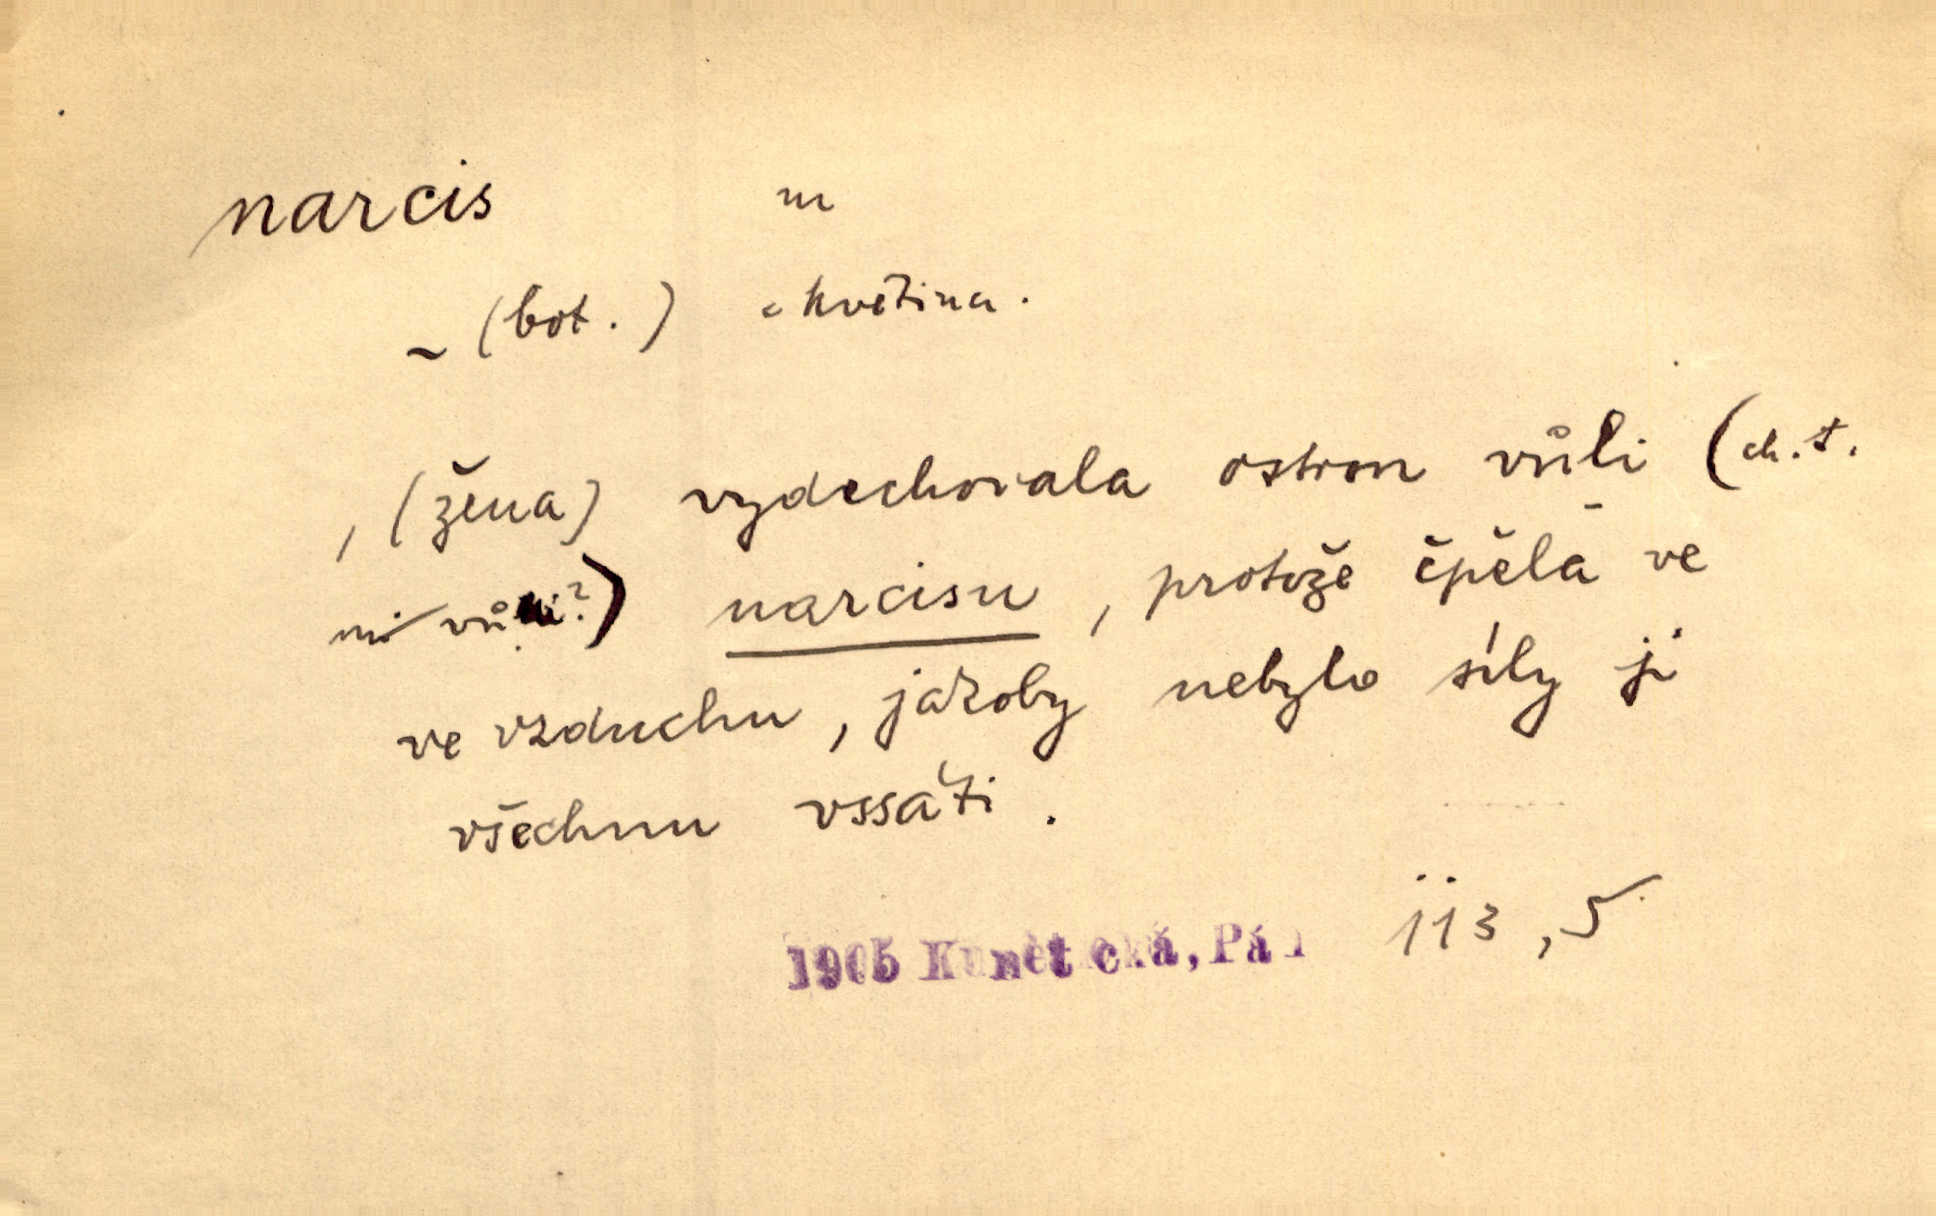 narcis m
~ (bot.) květina.
, (žena) vydechovala ostrou vůli (ch. t.
vůni?) narcisu, protože čpěla ve
ve vzduchu, jakoby nebylo síly ji
všechnu vssáti.
1905 Kunětická, Pál 113, 5